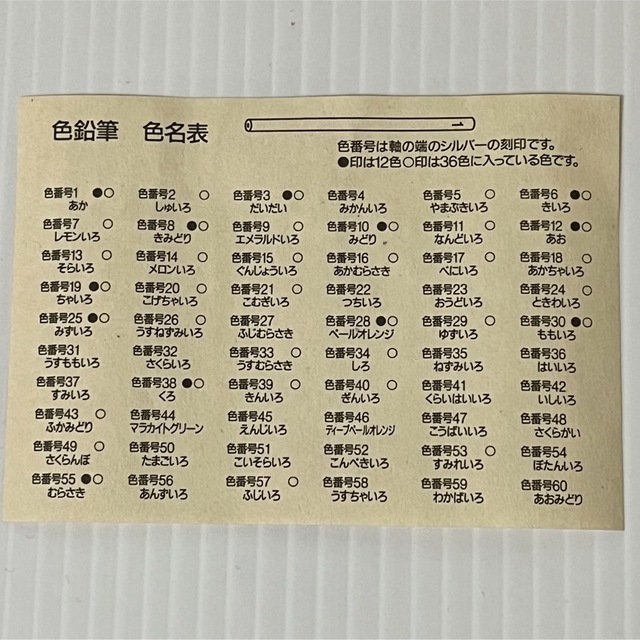 色鉛筆 色名表
1
色番号は軸の端のシルバーの刻印です。
●印は12色○印は36色に入っている色です。
色番号1 ●○ 色番号2 ○ 色番号3 ●○ 色番号4 色番号5 ○ 色番号6 ●○
あか しゅいろ だいだい みかんいろ やまぶきいろ きいろ
色番号7 ○ 色番号8 ●○ 色番号9 ○ 色番号10 ●○ 色番号11 ○ 色番号12 ●○
レモンいろ きみどり エメラルドいろ みどり なんどいろ あお
色番号13 ○ 色番号14 色番号15 ○ 色番号16 ○ 色番号17 ○ 色番号18 ○
そらいろ メロンいろ ぐんじょういろ あかむらさき べにいろ あかちゃいろ
色番号19 ●○ 色番号20 ○ 色番号21 ○ 色番号22 色番号23 色番号24 ○
ちゃいろ こげちゃいろ こむぎいろ つちいろ おうどいろ ときわいろ
色番号25 ●○ 色番号26 ○ 色番号27 色番号28 ●○ 色番号29 ○ 色番号30 ●○
みずいろ うすねずみいろ ふじむらさき ペールオレンジ ゆずいろ ももいろ
色番号31 色番号32 色番号33 ○ 色番号34 ○ 色番号35 色番号36
うすももいろ さくらいろ うすむらさき しろ ねずみいろ はいいろ
色番号37 色番号38 ●○ 色番号39 ○ 色番号40 ○ 色番号41 色番号42
すみいろ くろ きんいろ ぎんいろ くらいはいいろ いしいろ
色番号43 ○ 色番号44 色番号45 色番号46 色番号47 色番号48
ふかみどり マラカイトグリーン えんじいろ ディープペールオレンジ こうばいいろ さくらがい
色番号49 ○ 色番号50 色番号51 色番号52 色番号53 ○ 色番号54
さくらんぼ たまごいろ こいそらいろ こんぺきいろ すみれいろ ぼたんいろ
色番号55 ●○ 色番号56 色番号57 ○ 色番号58 色番号59 色番号60
むらさき あんずいろ ふじいろ うすちゃいろ わかばいろ あおみどり